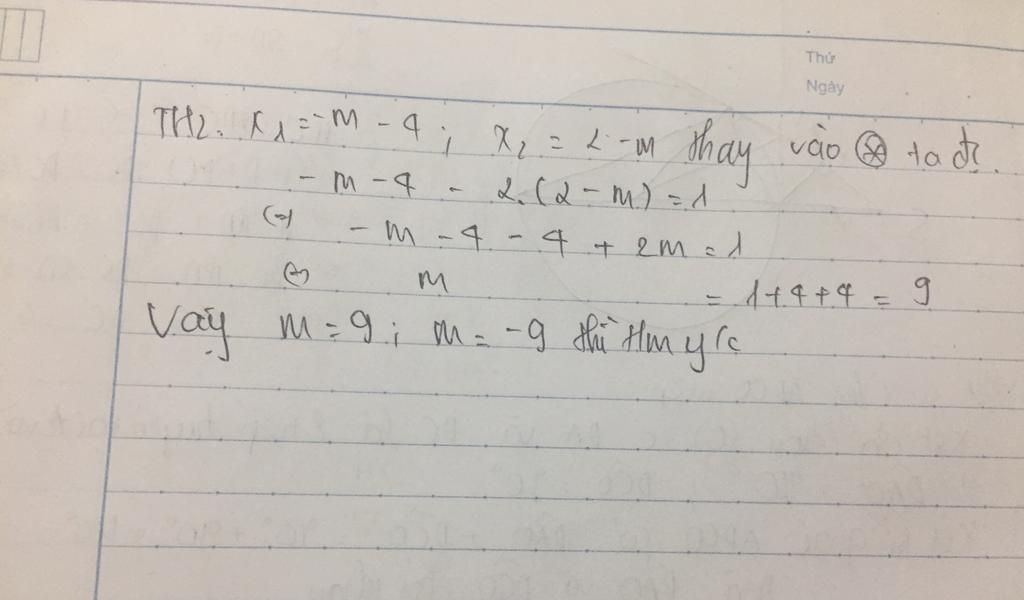 Thứ
Ngày
TH2. x₁ = -m - 4 ; x₂ = 2 - m thay vào ⊛ ta đc.
- m - 4 - 2.(2 - m) = 1
(=) - m - 4 - 4 + 2m = 1
(=) m = 1+4+4 = 9
Vậy m = 9 ; m = -9 thì tmy/c